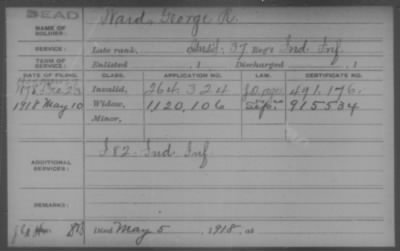 DEAD
NAME OF SOLDIER: Ward, George R.
SERVICE: Late rank, 37 Reg't Ind. Inf.
TERM OF SERVICE: Enlisted , 1 Discharged , 1
DATE OF FILING. CLASS. APPLICATION NO. LAW. CERTIFICATE NO.
Invalid, 264.324 491.176.
1918 May 10 Widow, 1120,106 Sep. 915534
Minor,
ADDITIONAL SERVICES: I 82 - Ind Inf
REMARKS:
Died May 5, 1918, at